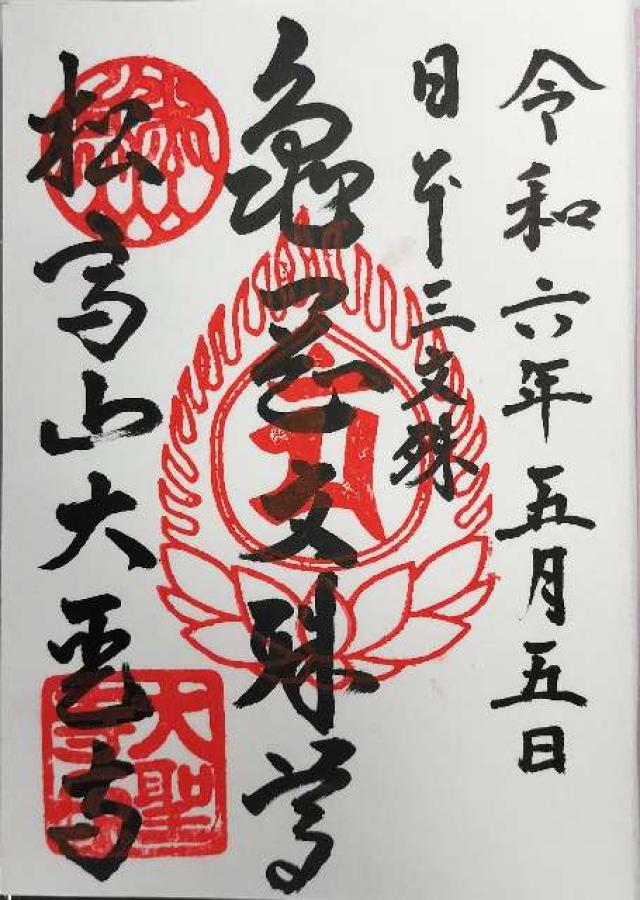 令和六年五月五日
日本三文殊
亀岡文殊尊
松高山大聖寺
大聖寺